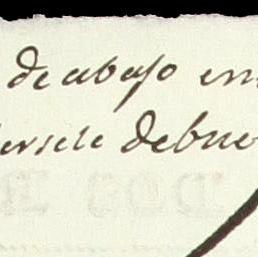 de abajo en
erse le debue